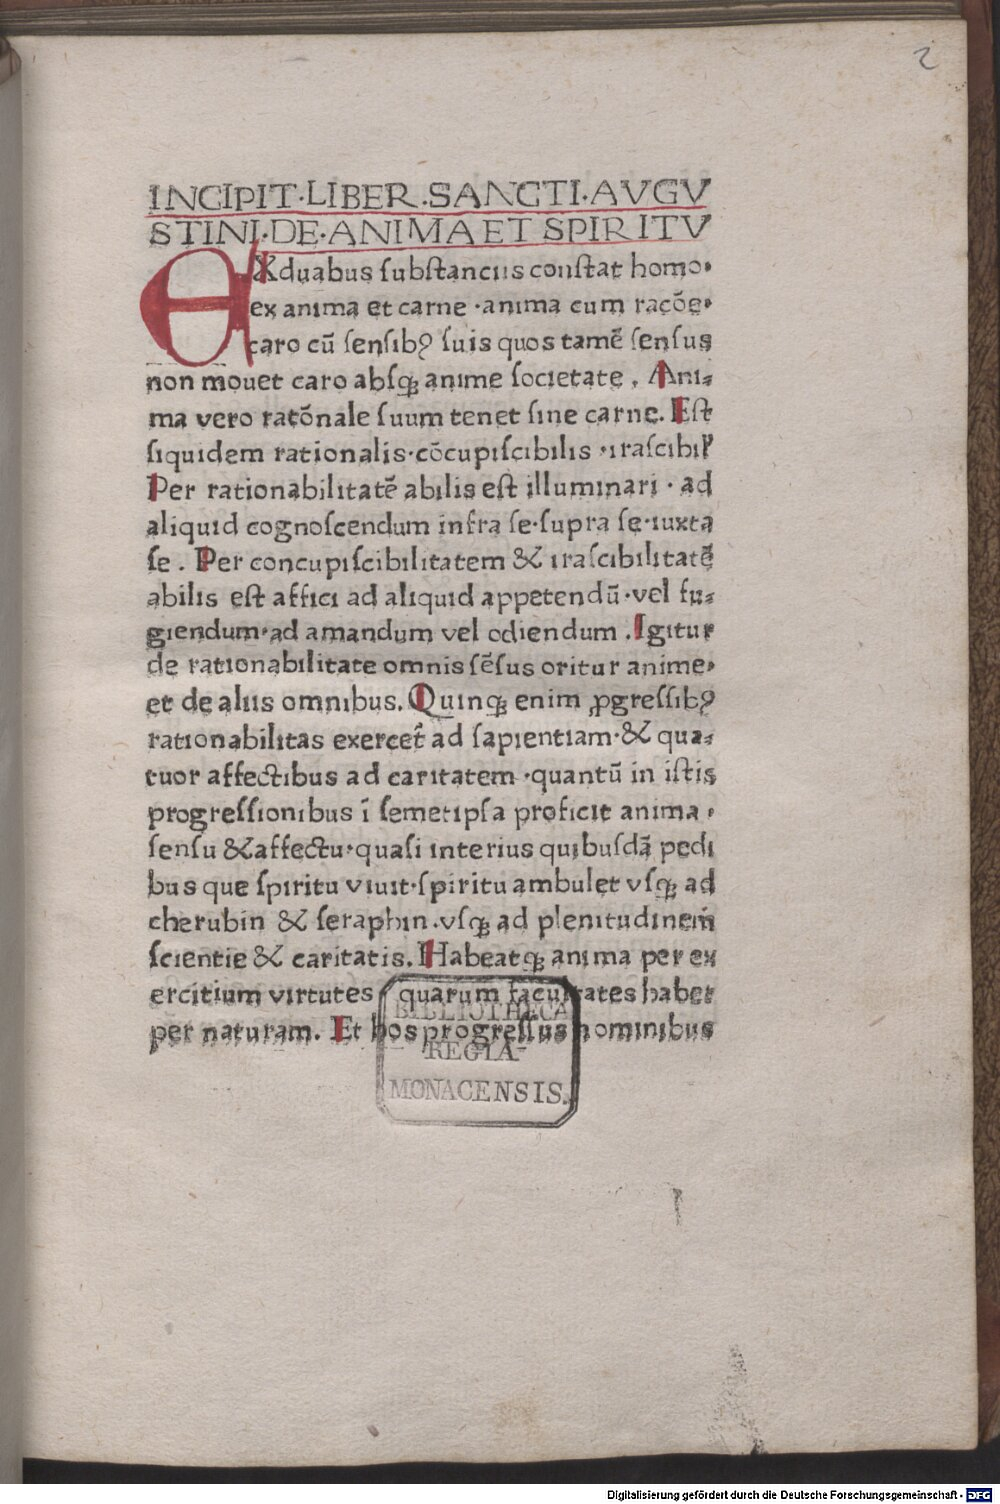 2
INCIPIT·LIBER·SANCTI·AVGV
STINI·DE·ANIMA ET SPIRITV
EXduabus ſubſtanciis conſtat homo·
ex anima et carne ·anima cum racōe·
caro cū ſenſibꝰ ſuis quos tamē ſenſus
non mouet caro abſqꝫ anime ſocietate . Ani⸗
ma vero ratōnale ſuum tenet ſine carne. Eſt
ſiquidem rationalis·cōcupiſcibilis ·iraſcibiꝉ
Per rationabilitatē abilis eſt illuminari · ad
aliquid cognoſcendum infra ſe·ſupra ſe·iuxta
ſe . Per concupiſcibilitatem & iraſcibilitatē
abilis eſt affici ad aliquid appetendū·vel fu⸗
giendum·ad amandum vel odiendum . Igitur
de rationabilitate omnis ſēſus oritur anime·
et de aliis omnibus. Quinqꝫ enim ꝓgreſſibꝰ
rationabilitas exercet̄ ad ſapientiam·& qua⸗
tuor affectibus ad caritatem ·quantū in iſtis
progreſſionibus ī ſemetipſa proficit anima ·
ſenſu & affectu·quaſi interius quibuſdā pedi
bus que ſpiritu viuit·ſpiritu ambulet vſqꝫ ad
cherubin & ſeraphin·vſqꝫ ad plenitudinem
ſcientie & caritatis. Habeatqꝫ anima per ex
ercitium virtutes quarum facultates habet
per naturam. Et hos progreſſus hominibus
BIBLIOTHECA
REGIA
MONACENSIS.
Digitalisierung gefördert durch die Deutsche Forschungsgemeinschaft - DFG